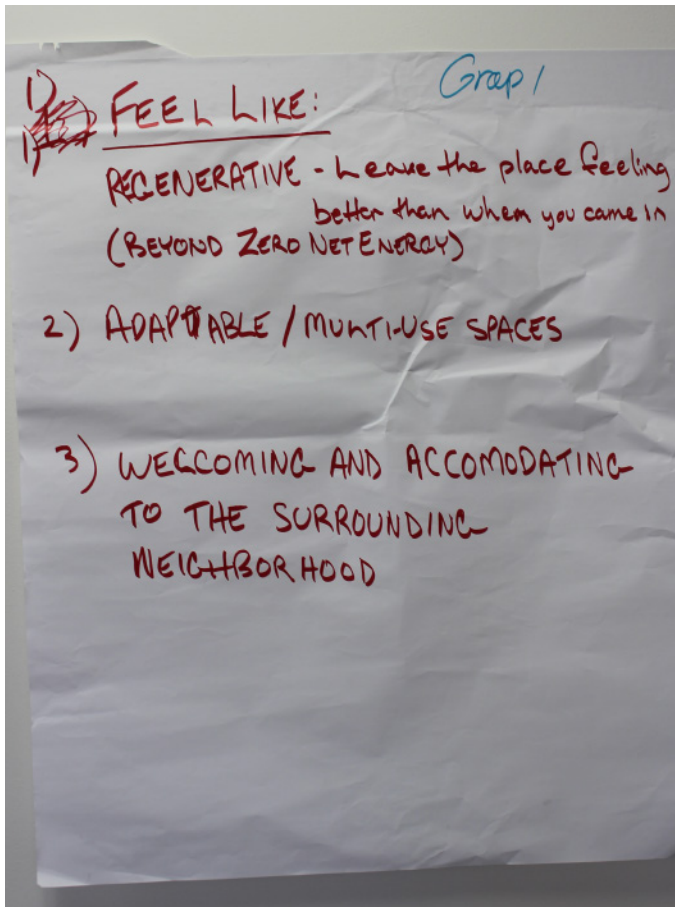 Group 1
1) FEEL LIKE:
1) REGENERATIVE - Leave the place feeling
better than when you came in
(BEYOND ZERO NET ENERGY)
2) ADAPTABLE / MULTI-USE SPACES
3) WELCOMING AND ACCOMODATING
TO THE SURROUNDING
NEIGHBORHOOD